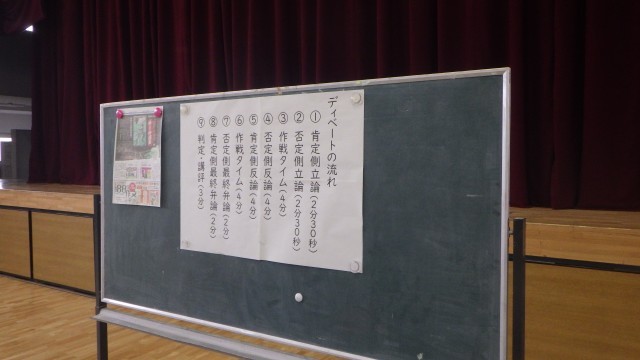 ディベートの流れ
①肯定側立論(2分30秒)
②否定側立論(2分30秒)
③作戦タイム(4分)
④否定側反論(4分)
⑤肯定側反論(4分)
⑥作戦タイム(4分)
⑦否定側最終弁論(2分)
⑧肯定側最終弁論(2分)
⑨判定・講評(3分)